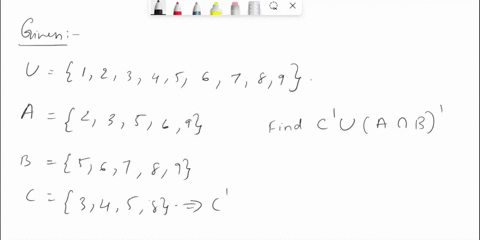 Given:-
U = {1, 2, 3, 4, 5, 6, 7, 8, 9}.
A = {2, 3, 5, 6, 9}
find C' U (A ∩ B)'
B = {5, 6, 7, 8, 9}
C = {3, 4, 5, 8}. ⇒ C'